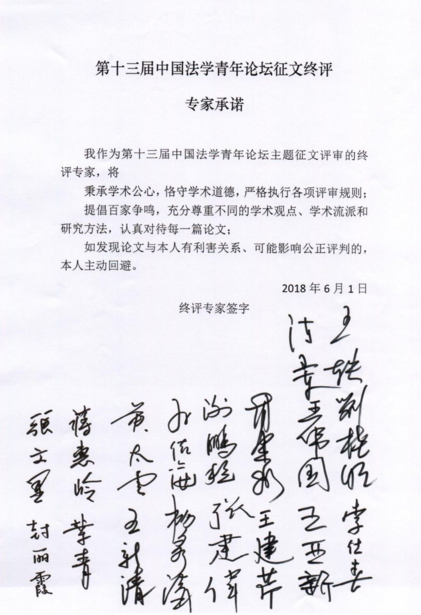 第十三届中国法学青年论坛征文终评
专家承诺
我作为第十三届中国法学青年论坛主题征文评审的终
评专家，将
秉承学术公心，恪守学术道德，严格执行各项评审规则；
提倡百家争鸣，充分尊重不同的学术观点、学术流派和
研究方法，认真对待每一篇论文；
如发现论文与本人有利害关系、可能影响公正评判的，
本人主动回避。
2018 年 6 月 1 日
终评专家签字
李仕春
王亚新
王建芹
谢鹏程
黄太云
王新清
蒋惠岭
叶青
张文显
封丽霞